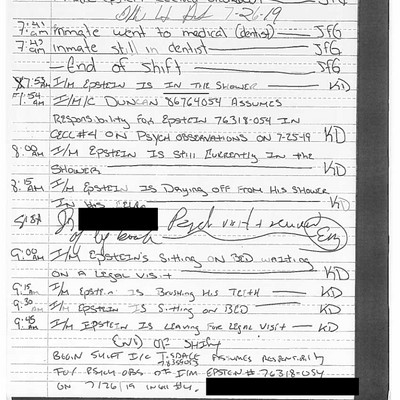 7-26-19
7:41 am inmate went to medical (dentist) JfG
7:43 am inmate still in dentist JfG
End of Shift JfG
7:53 am I/M EPSTEIN IS IN THE SHOWER KD
7:54 am I/M/C DUNCAN 86764054 ASSUMES
RESPONSIBILITY FOR EPSTEIN 76318-054 IN
CELL #4 ON PSYCH OBSERVATIONS ON 7-25-19 KD
8:00 am I/M EPSTEIN IS STILL CURRENTLY IN THE
SHOWER KD
8:15 am I/M EPSTEIN IS DRYING OFF FROM HIS SHOWER
IN HIS KD
Psych visit
9:00 am I/M EPSTEIN'S SITTING ON BED WAITING
ON A LEGAL VISIT KD
9:15 am I/M EPSTEIN IS BRUSHING HIS TEETH KD
9:30 am I/M EPSTEIN IS SITTING ON BED KD
9:45 am I/M EPSTEIN IS LEAVING FOR LEGAL VISIT KD
END OF SHIFT
BEGIN SHIFT I/C ASSUMES RESPONSIBILITY
FOR PSYCH OBS OF I/M EPSTEIN # 76318-054
ON 7/26/19 IN #4.